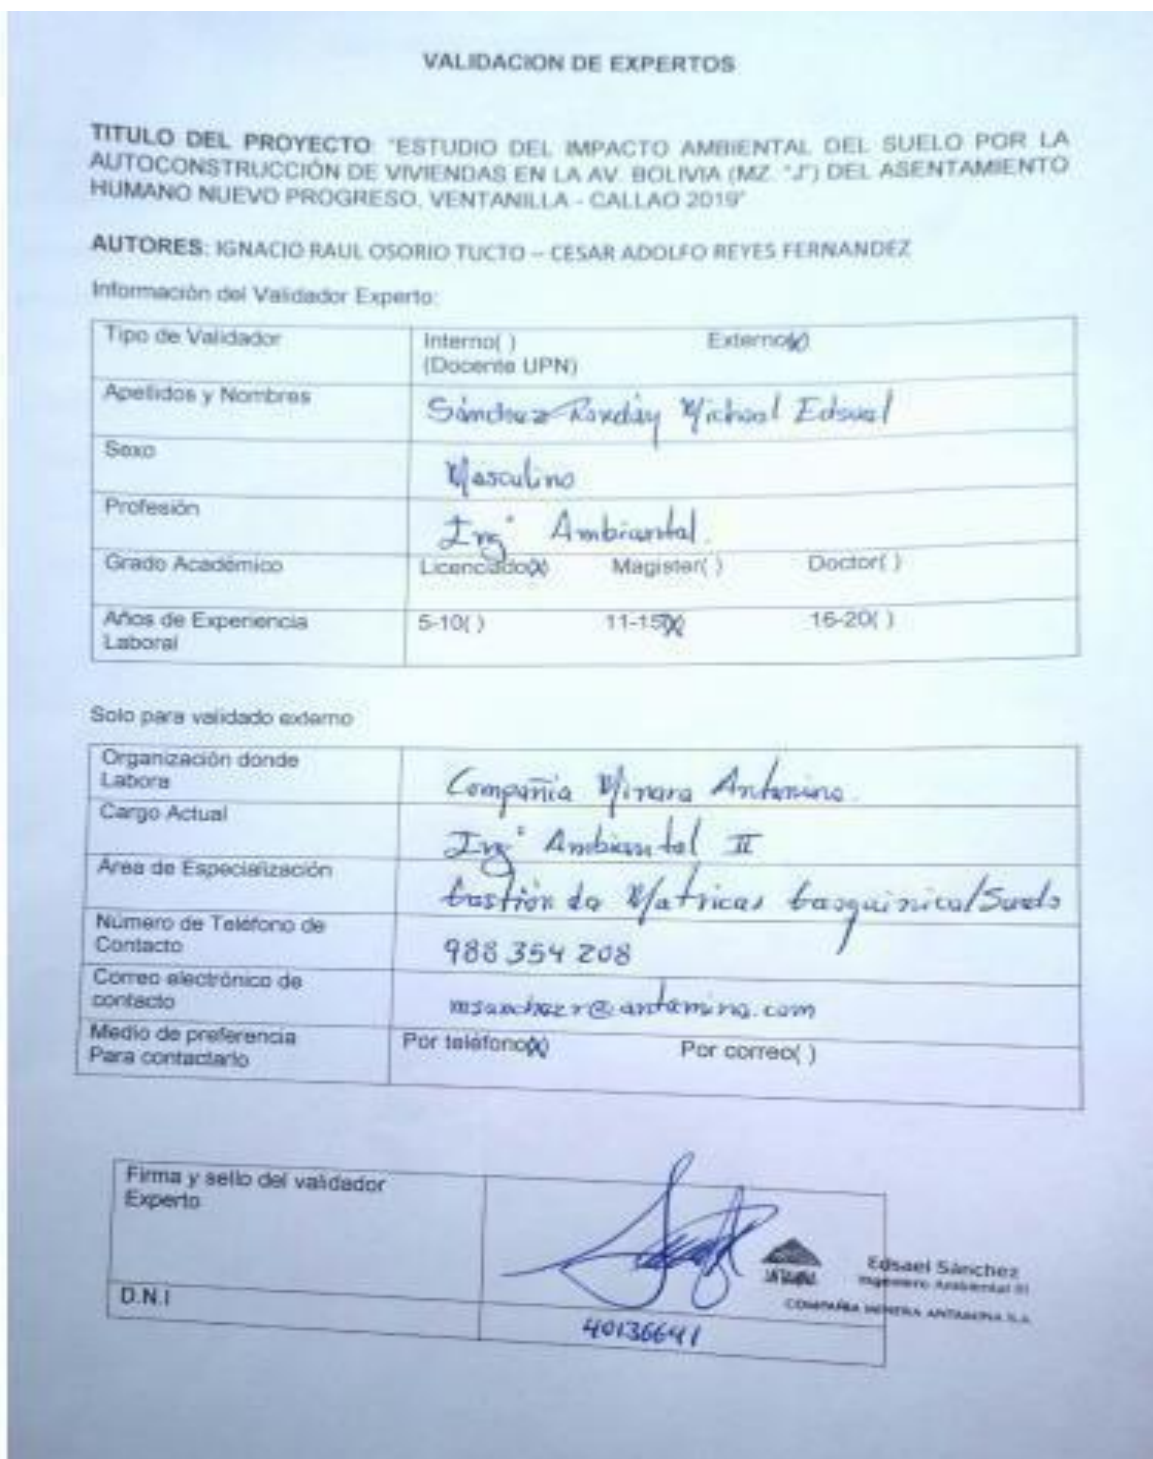 VALIDACION DE EXPERTOS
TITULO DEL PROYECTO: "ESTUDIO DEL IMPACTO AMBIENTAL DEL SUELO POR LA
AUTOCONSTRUCCIÓN DE VIVIENDAS EN LA AV. BOLIVIA (MZ. "J") DEL ASENTAMIENTO
HUMANO NUEVO PROGRESO, VENTANILLA - CALLAO 2019"
AUTORES: IGNACIO RAUL OSORIO TUCTO – CESAR ADOLFO REYES FERNANDEZ
Información del Validador Experto:
Tipo de Validador Interno( ) Externo(X)
(Docente UPN)
Apellidos y Nombres Sánchez Michael Edsael
Sexo Masculino
Profesión Ing° Ambiental.
Grado Académico Licenciado(X) Magister( ) Doctor( )
Años de Experiencia 5-10( ) 11-15(X) 16-20( )
Laboral
Solo para validado externo
Organización donde
Labora Compañia Minera Antamina.
Cargo Actual Ing° Ambiental II
Area de Especialización Gestión de Matrices Geoquimica/Suelo
Número de Teléfono de
Contacto 988 354 208
Correo electrónico de
contacto msanchezr@antamina.com
Medio de preferencia Por teléfono(X) Por correo( )
Para contactarlo
Firma y sello del validador
Experto
Edsael Sánchez
Ingeniero Ambiental III
COMPAÑIA MINERA ANTAMINA S.A.
D.N.I 40136641